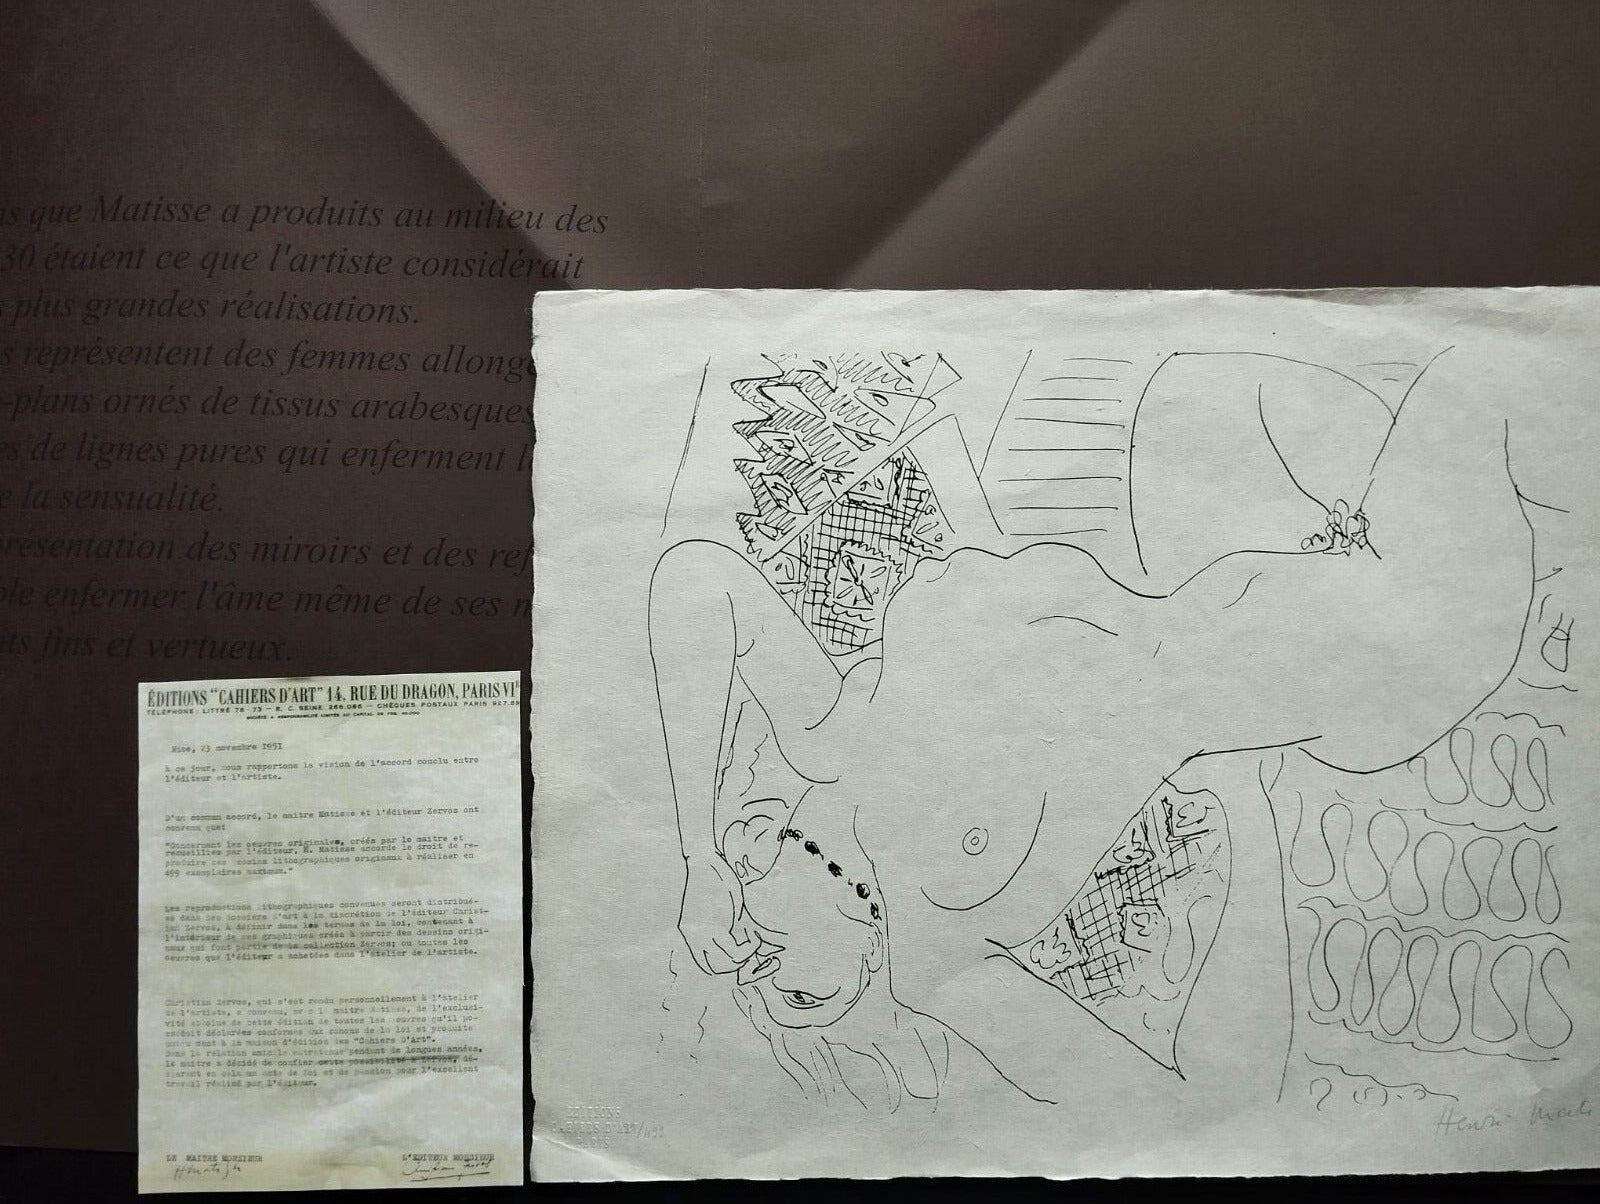 ns que Matisse a produits au milieu des
30 étaient ce que l'artiste considérait
s plus grandes réalisations.
s représentent des femmes allongé
-plans ornés de tissus arabesques
es de lignes pures qui enferment l
e la sensualité.
présentation des miroirs et des ref
ble enfermer l'âme même de ses m
its fins et vertueux.
ÉDITIONS "CAHIERS D'ART" 14, RUE DU DRAGON, PARIS VI
TÉLÉPHONE: LITTRÉ 76-73 — R. C. SEINE 266.086 — CHÈQUES POSTAUX PARIS 927.89
SOCIÉTÉ A RESPONSABILITÉ LIMITÉE AU CAPITAL DE FRS.
Nice, 23 novembre 1951
À ce jour, nous rapportons la vision de l'accord conclu entre
l'éditeur et l'artiste.
D'un commun accord, le maître Matisse et l'éditeur Zervos ont
convenu que:
"Concernant les oeuvres originales, créés par le maître et
recueillies par l'éditeur, H. Matisse accorde le droit de re-
produire ces dessins lithographiques originaux à réaliser en
499 exemplaires maximum."
Les reproductions lithographiques convenues seront distribué-
es dans des dossiers d'art à la discrétion de l'éditeur Christ-
ian Zervos, à définir dans les termes de la loi, contenant à
l'intérieur de ses graphiques créés à partir des dessins origi-
naux qui font partie de la collection Zervos; ou toutes les
oeuvres que l'éditeur a achetées dans l'atelier de l'artiste.
Christian Zervos, qui s'est rendu personnellement à l'atelier
de l'artiste, a convenu, avec le maître Matisse, de l'exclusi-
vité absolue de cette édition de toutes les oeuvres qu'il po-
ssédait déclarées conformes aux canons de la loi et produits
uniquement à la maison d'édition des "Cahiers D'Art".
Dans la relation amicale entretenue pendant de longues années,
le maître a décidé de confier cette possibilité à Zervos, dé-
clarant en cela un acte de foi et de passion pour l'excellent
travail réalisé par l'éditeur.
LE MAITRE MONSIEUR
L'EDITEUR MONSIEUR
EDITIONS
CAHIERS D'ART/499
PARIS
Henri Mati